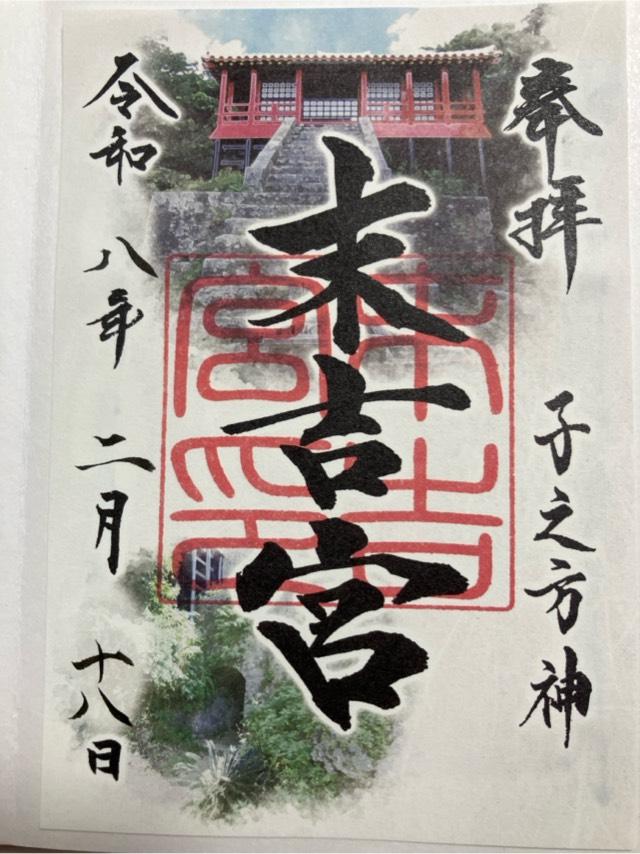 奉拝
子之方神
末吉宮
末吉宮印
令和八年二月十八日